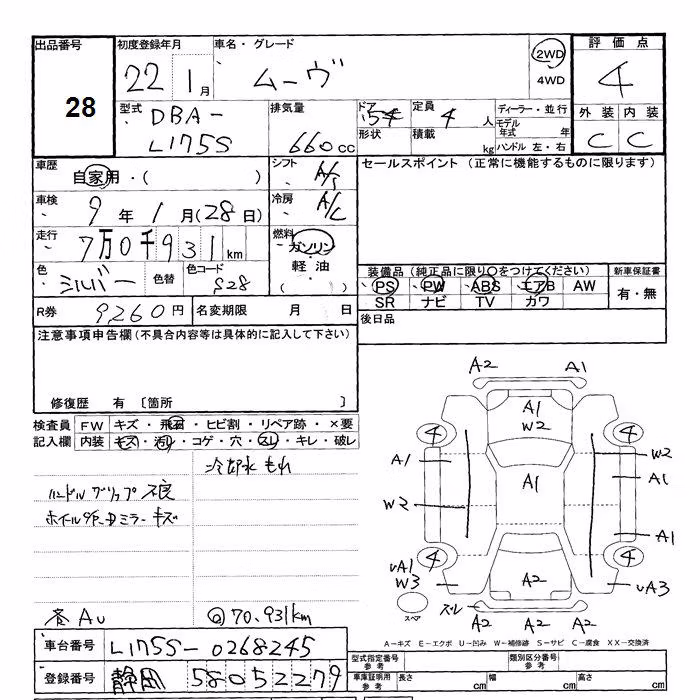 出品番号 28
初度登録年月 22 1月
車名・グレード ムーヴ
2WD
4WD
評価点 4
外装 C 内装 C
型式 DBA-L175S
排気量 660cc
ドア
形状
定員 4人
積載 kg
ディーラー・並行
モデル年式 年
ハンドル 左・右
車歴 自家用・( )
シフト
冷房 A/C
セールスポイント (正常に機能するものに限ります)
車検 9年 1月(28日)
走行 7万0千931km
燃料 ガソリン
軽油
( )
色 シルバー 色替 色コード S28
装備品 (純正品に限り○をつけてください)
新車保証書
PS PW ABS エアB AW
SR ナビ TV カワ
有・無
R券 9260円 名変期限 月 日
後日品
注意事項申告欄(不具合内容等は具体的に記入して下さい)
修復歴 有 〔箇所 〕
検査員記入欄
FW キズ・飛石・ヒビ割・リペア跡・×要
内装 キズ・汚れ・コゲ・穴・スレ・キレ・破レ
冷却水 もれ
ハンドル グリップ 不良
ミラー キズ
70.931km
A2 A1
A1
W2
4 4
A1 W2
A1 A1
W2
A1
4 4
UA1
W3 A2 UA3
スペア スレ
A2 A2 A2
A-キズ E-エクボ U-凹み W-補修跡 S-サビ C-腐食 XX-交換済
車台番号 L175S-0268245
登録番号 静岡 580 5 2279
型式指定番号 参考
類別区分番号 参考
車庫証明用 参考
長さ cm 幅 cm 高さ cm